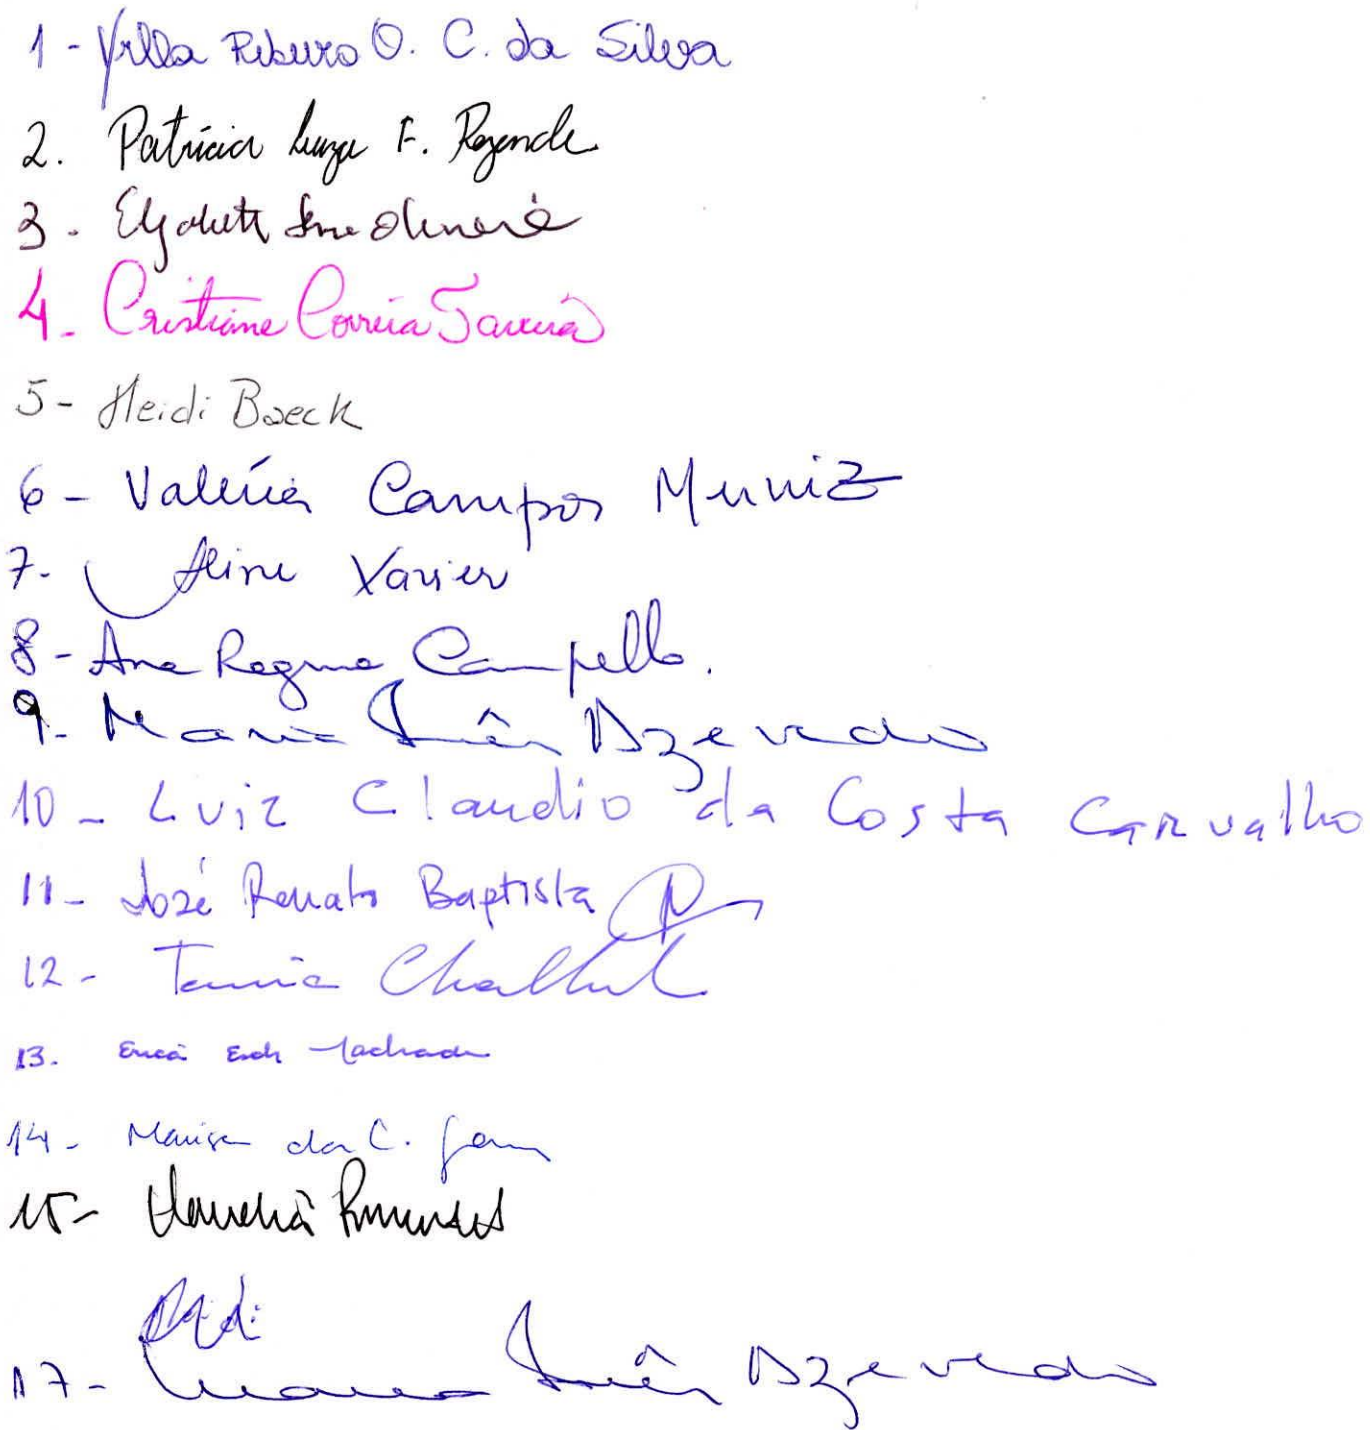 1 - Yrlla Ribeiro O. C. da Silva
2. Patrícia Luiza F. Rezende
3 - Elizabeth
4 - Cristiane Correia Taveira
5 - Heidi Baeck
6 - Valéria Campos Muniz
7 - Aline Xavier
8 - Ana Regina Campello.
9 - Maria Inês Azevedo
10 - Luiz Claudio da Costa Carvalho
11 - José Renato Baptista
12 - Tania Chalhub
13. Erica Esch Machado
14 - Marise da C.
15 -
17 - Maria Inês Azevedo